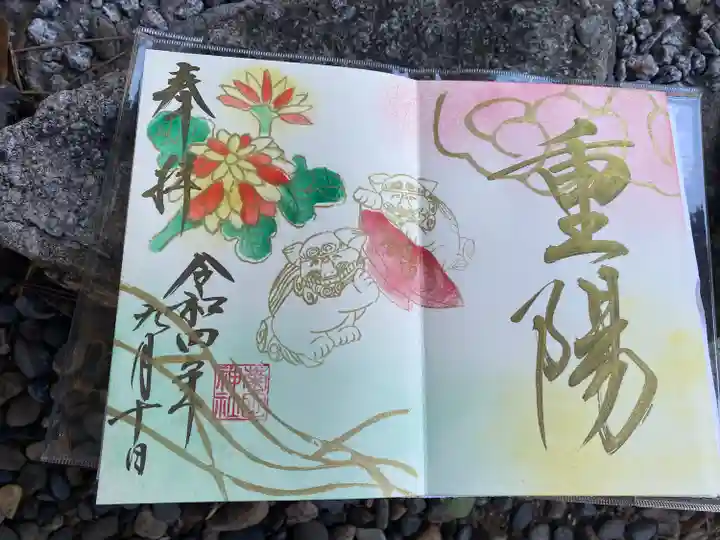 重陽
奉拝
令和四年
九月十日
神社